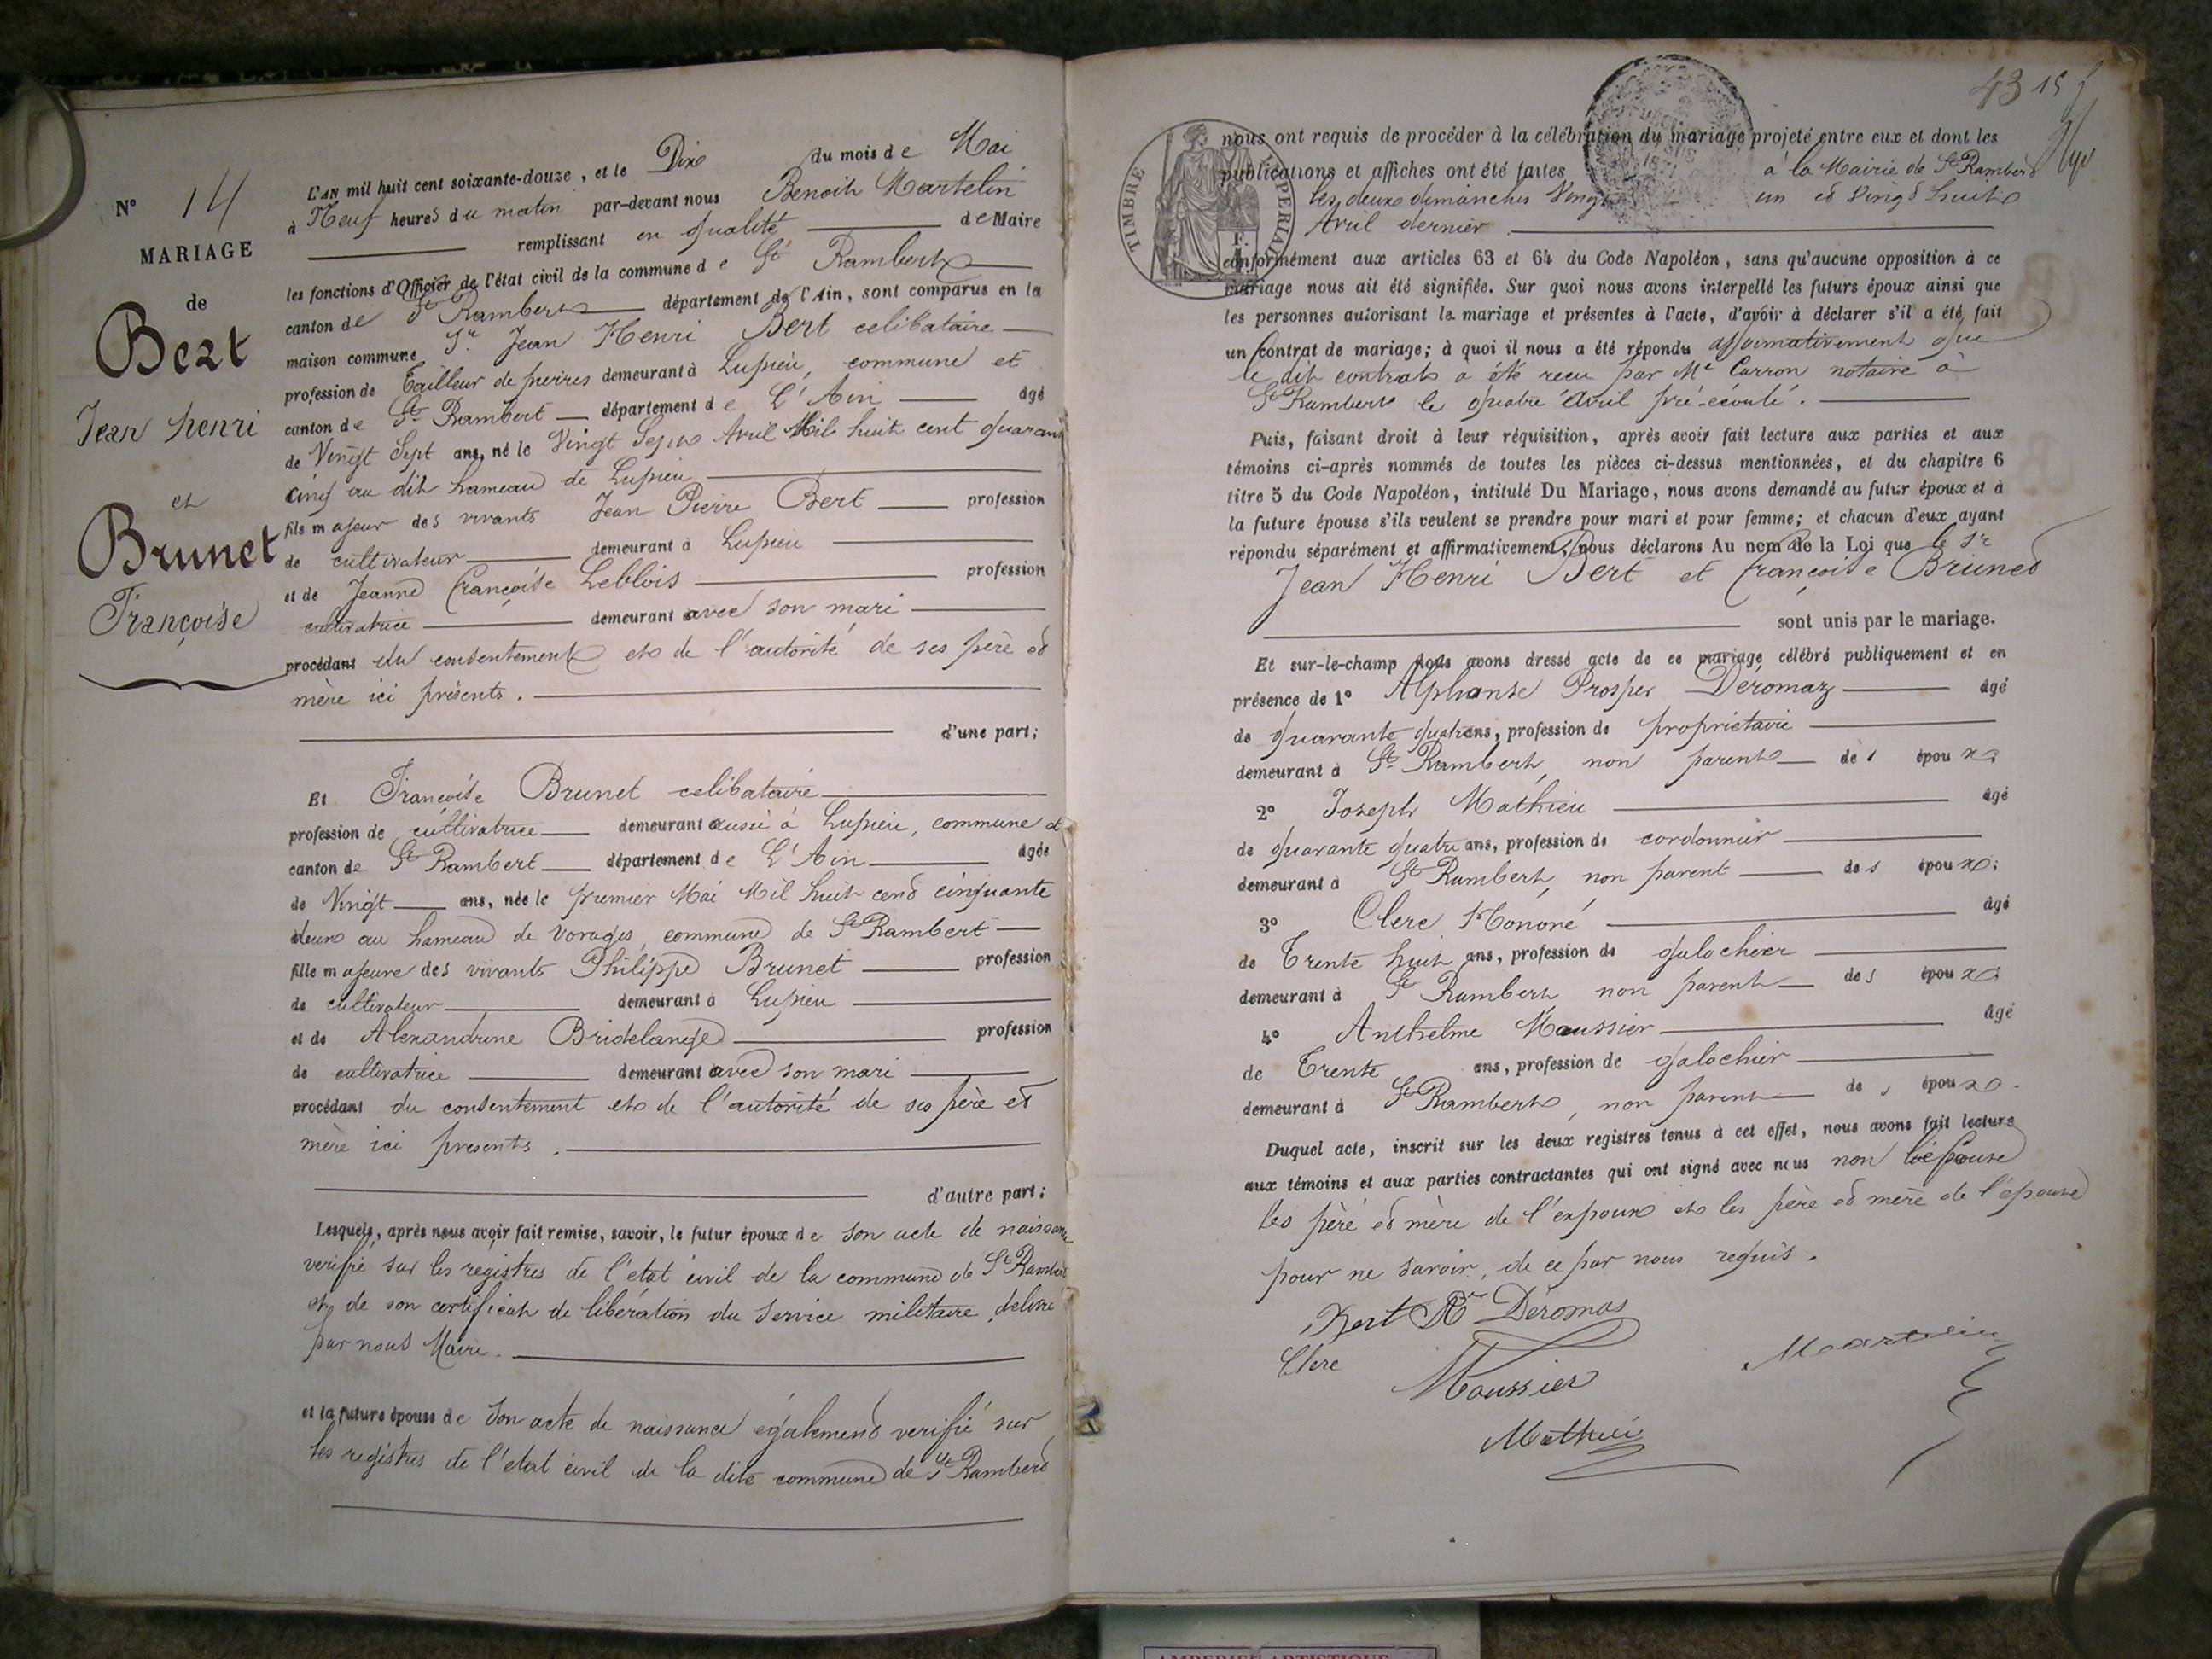 N° 14
MARIAGE
de
Bert
Jean henri
et
Brunet
Françoise
L'AN mil huit cent soixante-douze, et le Dix du mois de Mai
à Neuf heures du matin par-devant nous Benoit Martelin
remplissant en qualité de Maire
les fonctions d'Officier de l'état civil de la commune de St Rambert
canton de St Rambert département de l'Ain, sont comparus en la
maison commune Sr. Jean Henri Bert celibataire
profession de Tailleur de pierres demeurant à Lupieu, commune et
canton de St Rambert département de L'Ain âgé
de Vingt Sept ans, né le Vingt Sept Avril Mil huit cent quarante
cinq au dit hameau de Lupieu
fils majeur des vivants Jean Pierre Bert profession
de cultivateur demeurant à Lupieu
et de Jeanne Françoise Leblois profession
cultivatrice demeurant avec son mari
procédant du consentement et de l'autorité de ses père et
mère ici présents.
d'une part;
Et Françoise Brunet celibataire
profession de cultivatrice demeurant aussi à Lupieu, commune et
canton de St Rambert département de L'Ain âgée
de Vingt ans, née le premier Mai Mil huit cent cinquante
deux au hameau de Vorages, commune de St Rambert
fille majeure des vivants Philippe Brunet profession
de cultivateur demeurant à Lupieu
et de Alexandrine Bridelange profession
de cultivatrice demeurant avec son mari
procédant du consentement et de l'autorité de ses père et
mère ici presents.
d'autre part;
Lesquels, après nous avoir fait remise, savoir, le futur époux de son acte de naissance
verifié sur les registres de l'etat civil de la commune de St Rambert
et de son certificat de libération du service militaire, delivré
par nous Maire.
et la future épouse de son acte de naissance également verifié sur
les registres de l'etat civil de la dite commune de St Rambert
43 15
nous ont requis de procéder à la célébration du mariage projeté entre eux et dont les
publications et affiches ont été faites à la Mairie de St Rambert
les deux dimanches Vingt un et Vingt huit
Avril dernier
TIMBRE
conformément aux articles 63 et 64 du Code Napoléon, sans qu'aucune opposition à ce
mariage nous ait été signifiée. Sur quoi nous avons interpellé les futurs époux ainsi que
les personnes autorisant le mariage et présentes à l'acte, d'avoir à déclarer s'il a été fait
un contrat de mariage; à quoi il nous a été répondu affirmativement que
le dit contrat a été recu par Me Carron notaire à
St Rambert le quatre Avril pré-écoulé.
Puis, faisant droit à leur réquisition, après avoir fait lecture aux parties et aux
témoins ci-après nommés de toutes les pièces ci-dessus mentionnées, et du chapitre 6
titre 5 du Code Napoléon, intitulé Du Mariage, nous avons demandé au futur époux et à
la future épouse s'ils veulent se prendre pour mari et pour femme; et chacun d'eux ayant
répondu séparément et affirmativement, nous déclarons Au nom de la Loi que le Sr
Jean Henri Bert et Françoise Brunet
sont unis par le mariage.
Et sur-le-champ nous avons dressé acte de ce mariage célébré publiquement et en
présence de 1° Alphonse Prosper Déromaz âgé
de quarante quatre ans, profession de proprietaire
demeurant à St Rambert, non parent des époux;
2° Joseph Mathieu âgé
de quarante quatre ans, profession de cordonnier
demeurant à St Rambert, non parent des époux;
3° Clerc Honoré âgé
de Trente huit ans, profession de galochier
demeurant à St Rambert non parent des époux;
4° Anthelme Maussier âgé
de Trente ans, profession de galochier
demeurant à St Rambert, non parent des époux.
Duquel acte, inscrit sur les deux registres tenus à cet effet, nous avons fait lecture
aux témoins et aux parties contractantes qui ont signé avec nous non l'épouse
les père et mère de l'expoux et les père et mère de l'épouse
pour ne savoir, de ce par nous requis.
Bert Déromas
Clerc
Maussier
Martelin
Mathieu